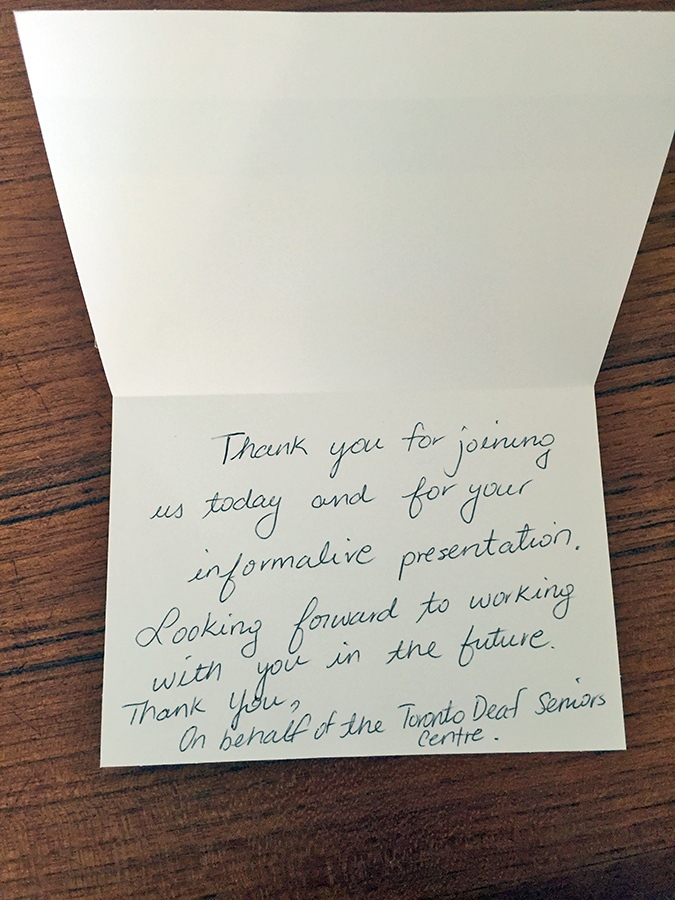 Thank you for joining
us today and for your
informative presentation.
Looking forward to working
with you in the future.
Thank you,
On behalf of the Toronto Deaf Seniors
Centre.